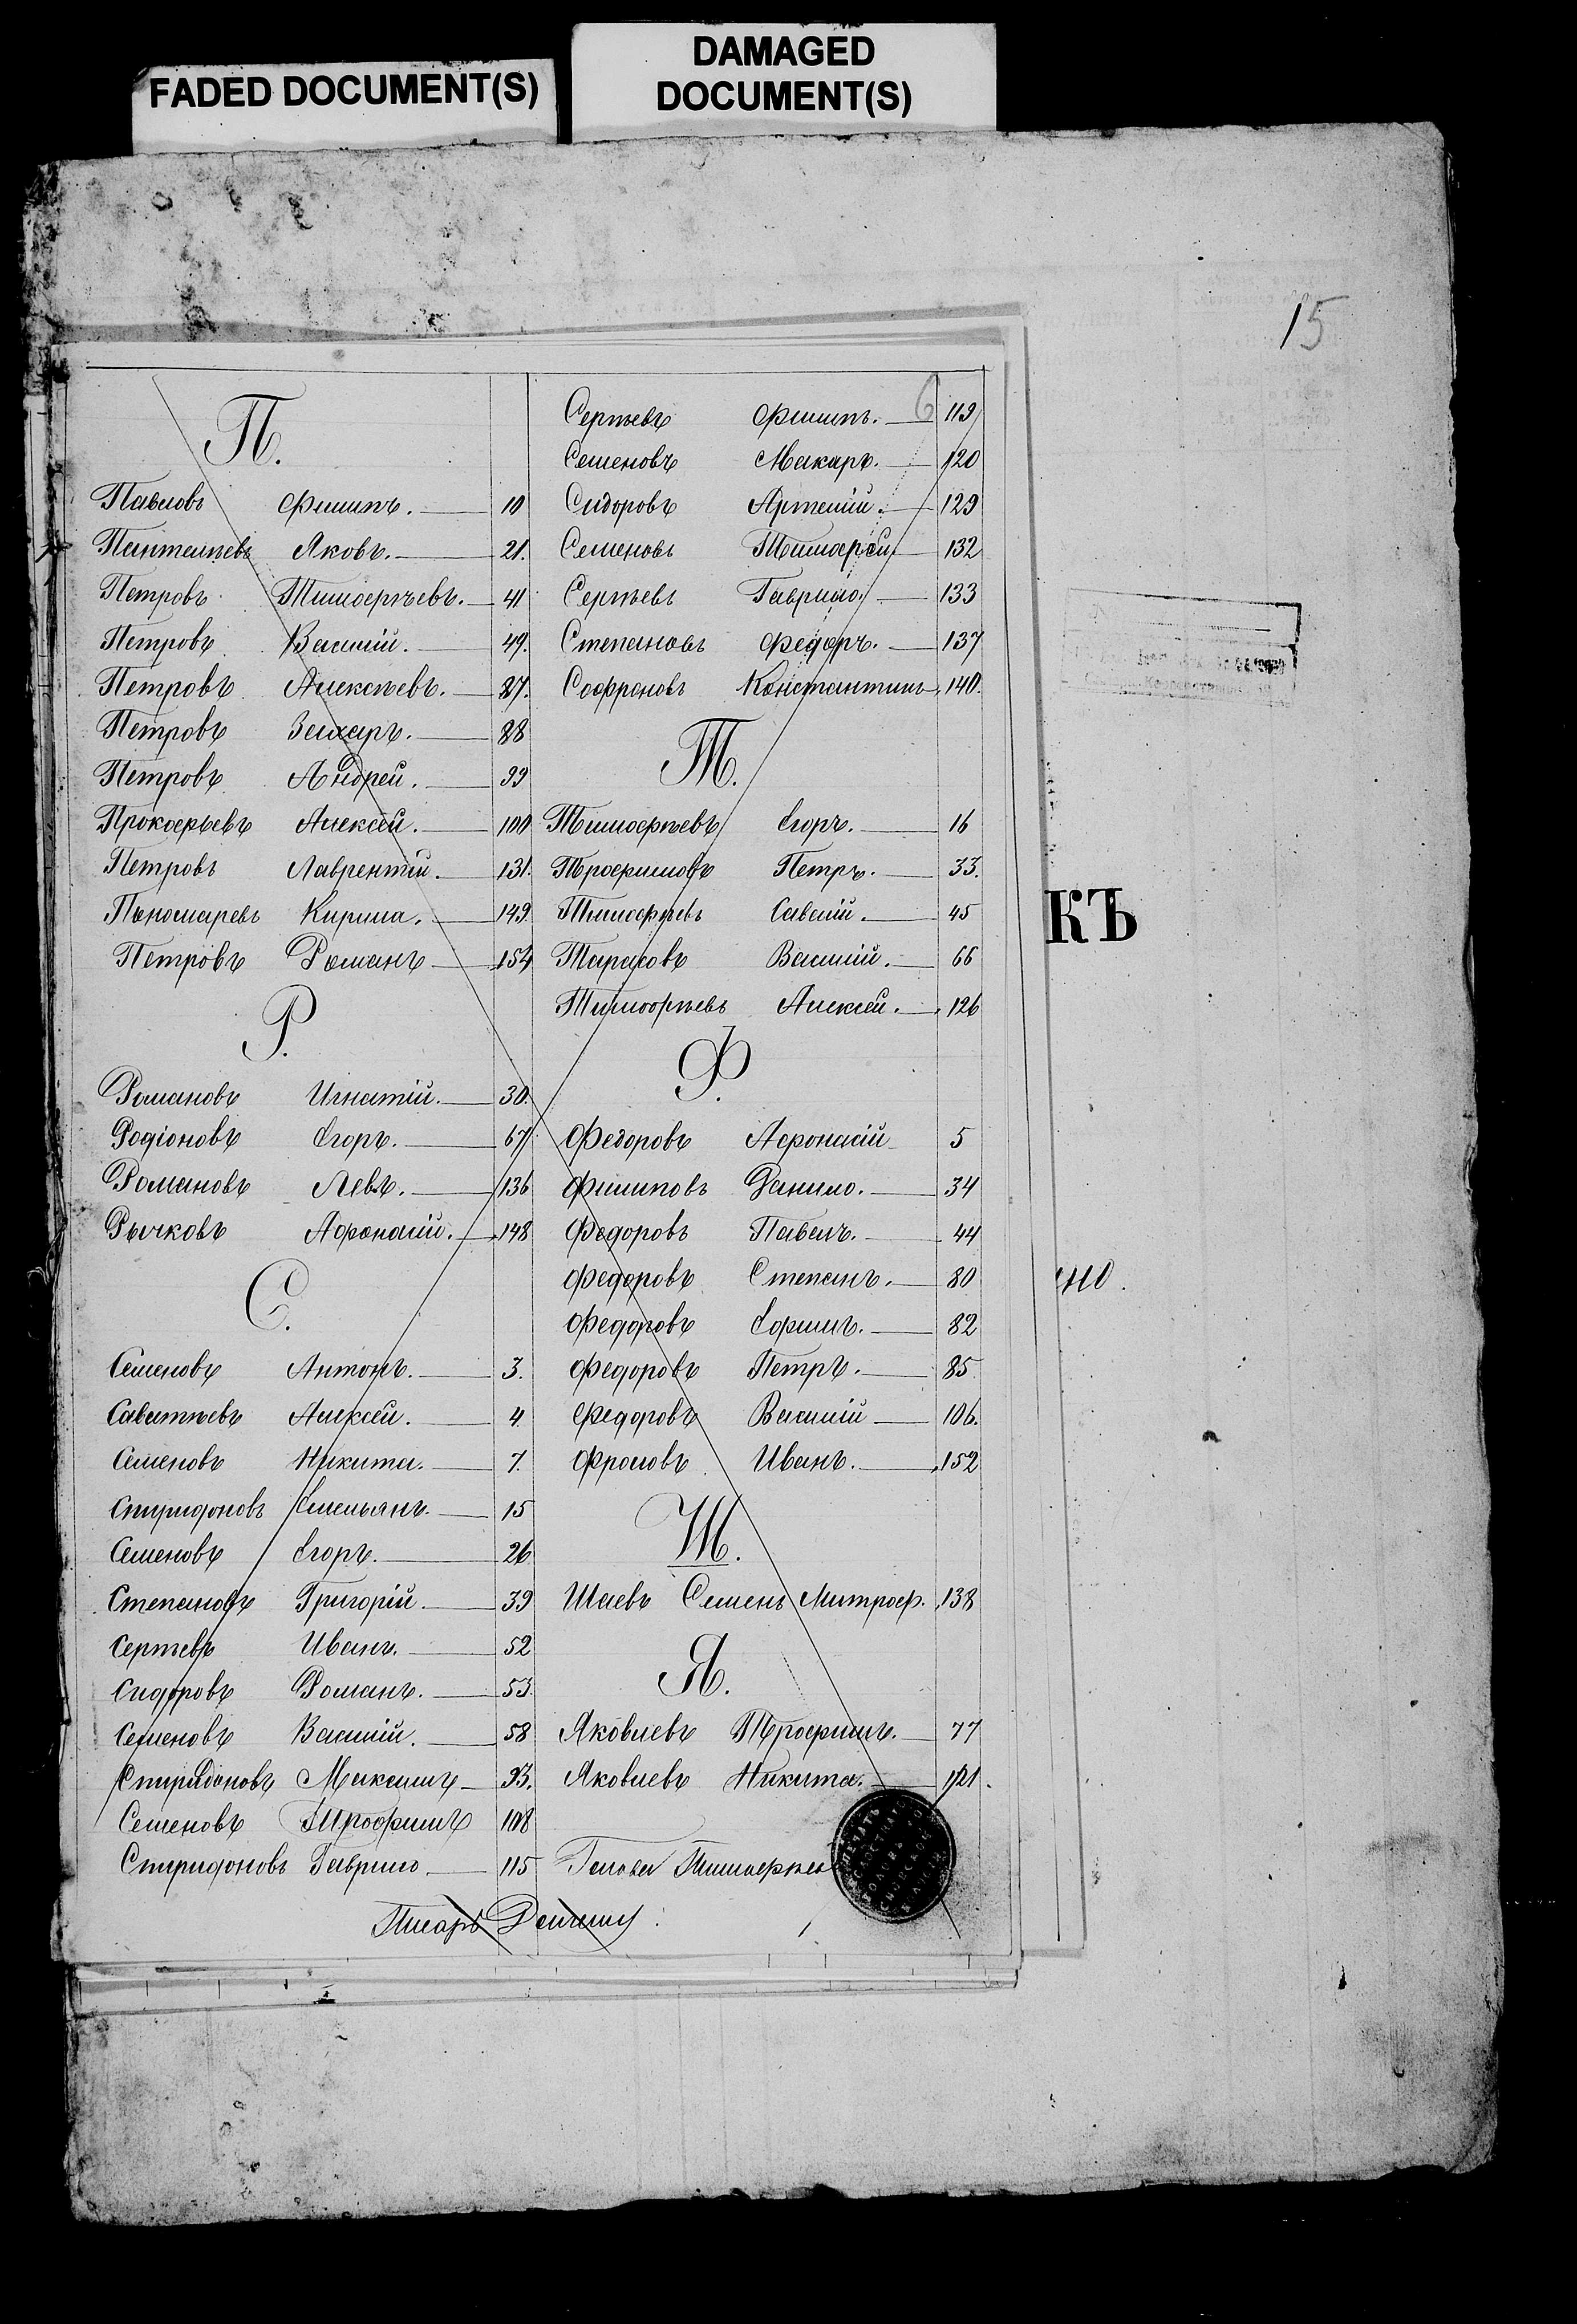 FADED DOCUMENT(S)
DAMAGED
DOCUMENT(S)
15
П.
Павловъ Филиппъ. 10
Пантелѣевъ Яковъ. 21.
Петровъ Тимоѳеѣевъ. 41
Петровъ Василій. 49.
Петровъ Алексѣевъ. 87.
Петровъ Захаръ. 88
Петровъ Андрей. 99
Прокофьевъ Алексѣй. 100
Петровъ Лаврентій. 131.
Пономаревъ Кирила. 149
Петровъ Романъ 154
Р.
Романовъ Игнатій. 30.
Родіоновъ Егоръ. 67
Романовъ Левъ. 136
Рычковъ Афонасій. 148
С.
Семеновъ Антонъ. 3.
Саватѣевъ Алексѣй. 4
Семеновъ Никита. 7.
Спиридоновъ Емельянъ. 15
Семеновъ Егоръ. 26
Степановъ Григорій. 39
Сергѣевъ Иванъ. 52
Сидоровъ Романъ. 53.
Семеновъ Василій. 58
Спиридоновъ Максимъ 93.
Семеновъ Трофимъ 108
Спиридоновъ Гаврило. 115
Сергѣевъ Филипъ. 6 119
Семеновъ Макаръ. 120
Сидоровъ Артемій. 129
Семеновъ Тимофей 132
Сергѣевъ Гаврило. 133
Степановъ Федоръ. 137
Софроновъ Константинъ 140.
Т.
Тимофѣевъ Егоръ. 16
Трофимовъ Петръ. 33.
Тимофѣевъ Савелій. 45
Тарасовъ Василій. 66
Тимофѣевъ Алексѣй. 126
Ф.
Федоровъ Афонасій 5
Филиповъ Данило. 34
Федоровъ Павелъ. 44
Федоровъ Степанъ. 80
Федоровъ 82
Федоровъ Петръ. 85
Федоровъ Василій 106.
Фроловъ Иванъ. 152
Ш.
Шаевъ Семенъ Митроф. 138
Я.
Яковлевъ Трофимъ. 77
Яковлевъ Никита. 121.
Голова Тимофѣев
Писарь
КЪ